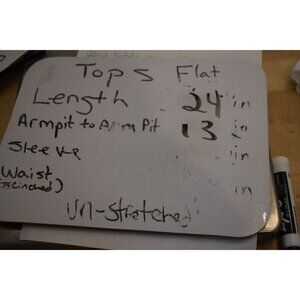 Tops Flat
Length 24 in
Armpit to Arm Pit 13 in
Sleeve in
Waist in
(If Cinched)
Un-Stretched